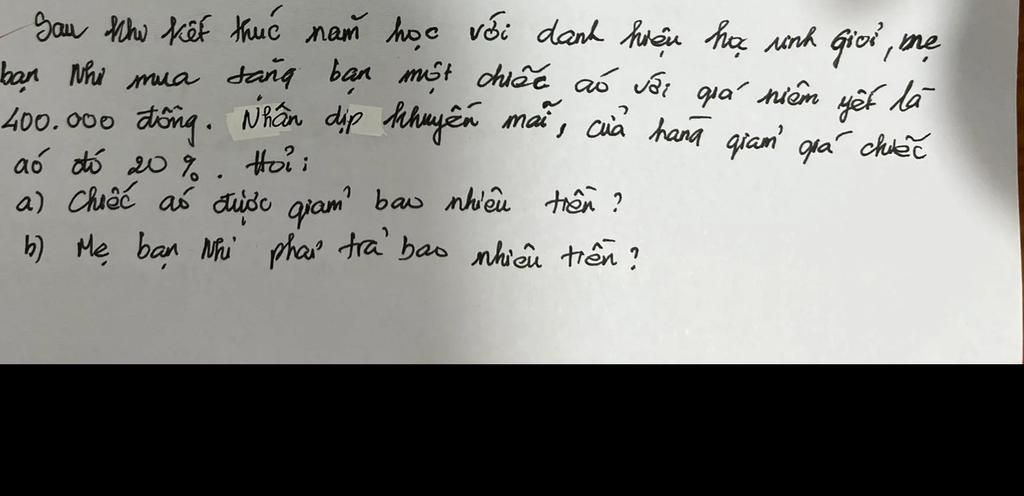 Sau khi kết thúc năm học với danh hiệu học sinh giỏi, mẹ
bạn Nhi mua tặng bạn một chiếc áo với giá niêm yết là
400.000 đồng. Nhân dịp khuyến mãi, cửa hàng giảm giá chiếc
áo đó 20%. Hỏi:
a) Chiếc áo được giảm bao nhiêu tiền?
b) Mẹ bạn Nhi phải trả bao nhiêu tiền?